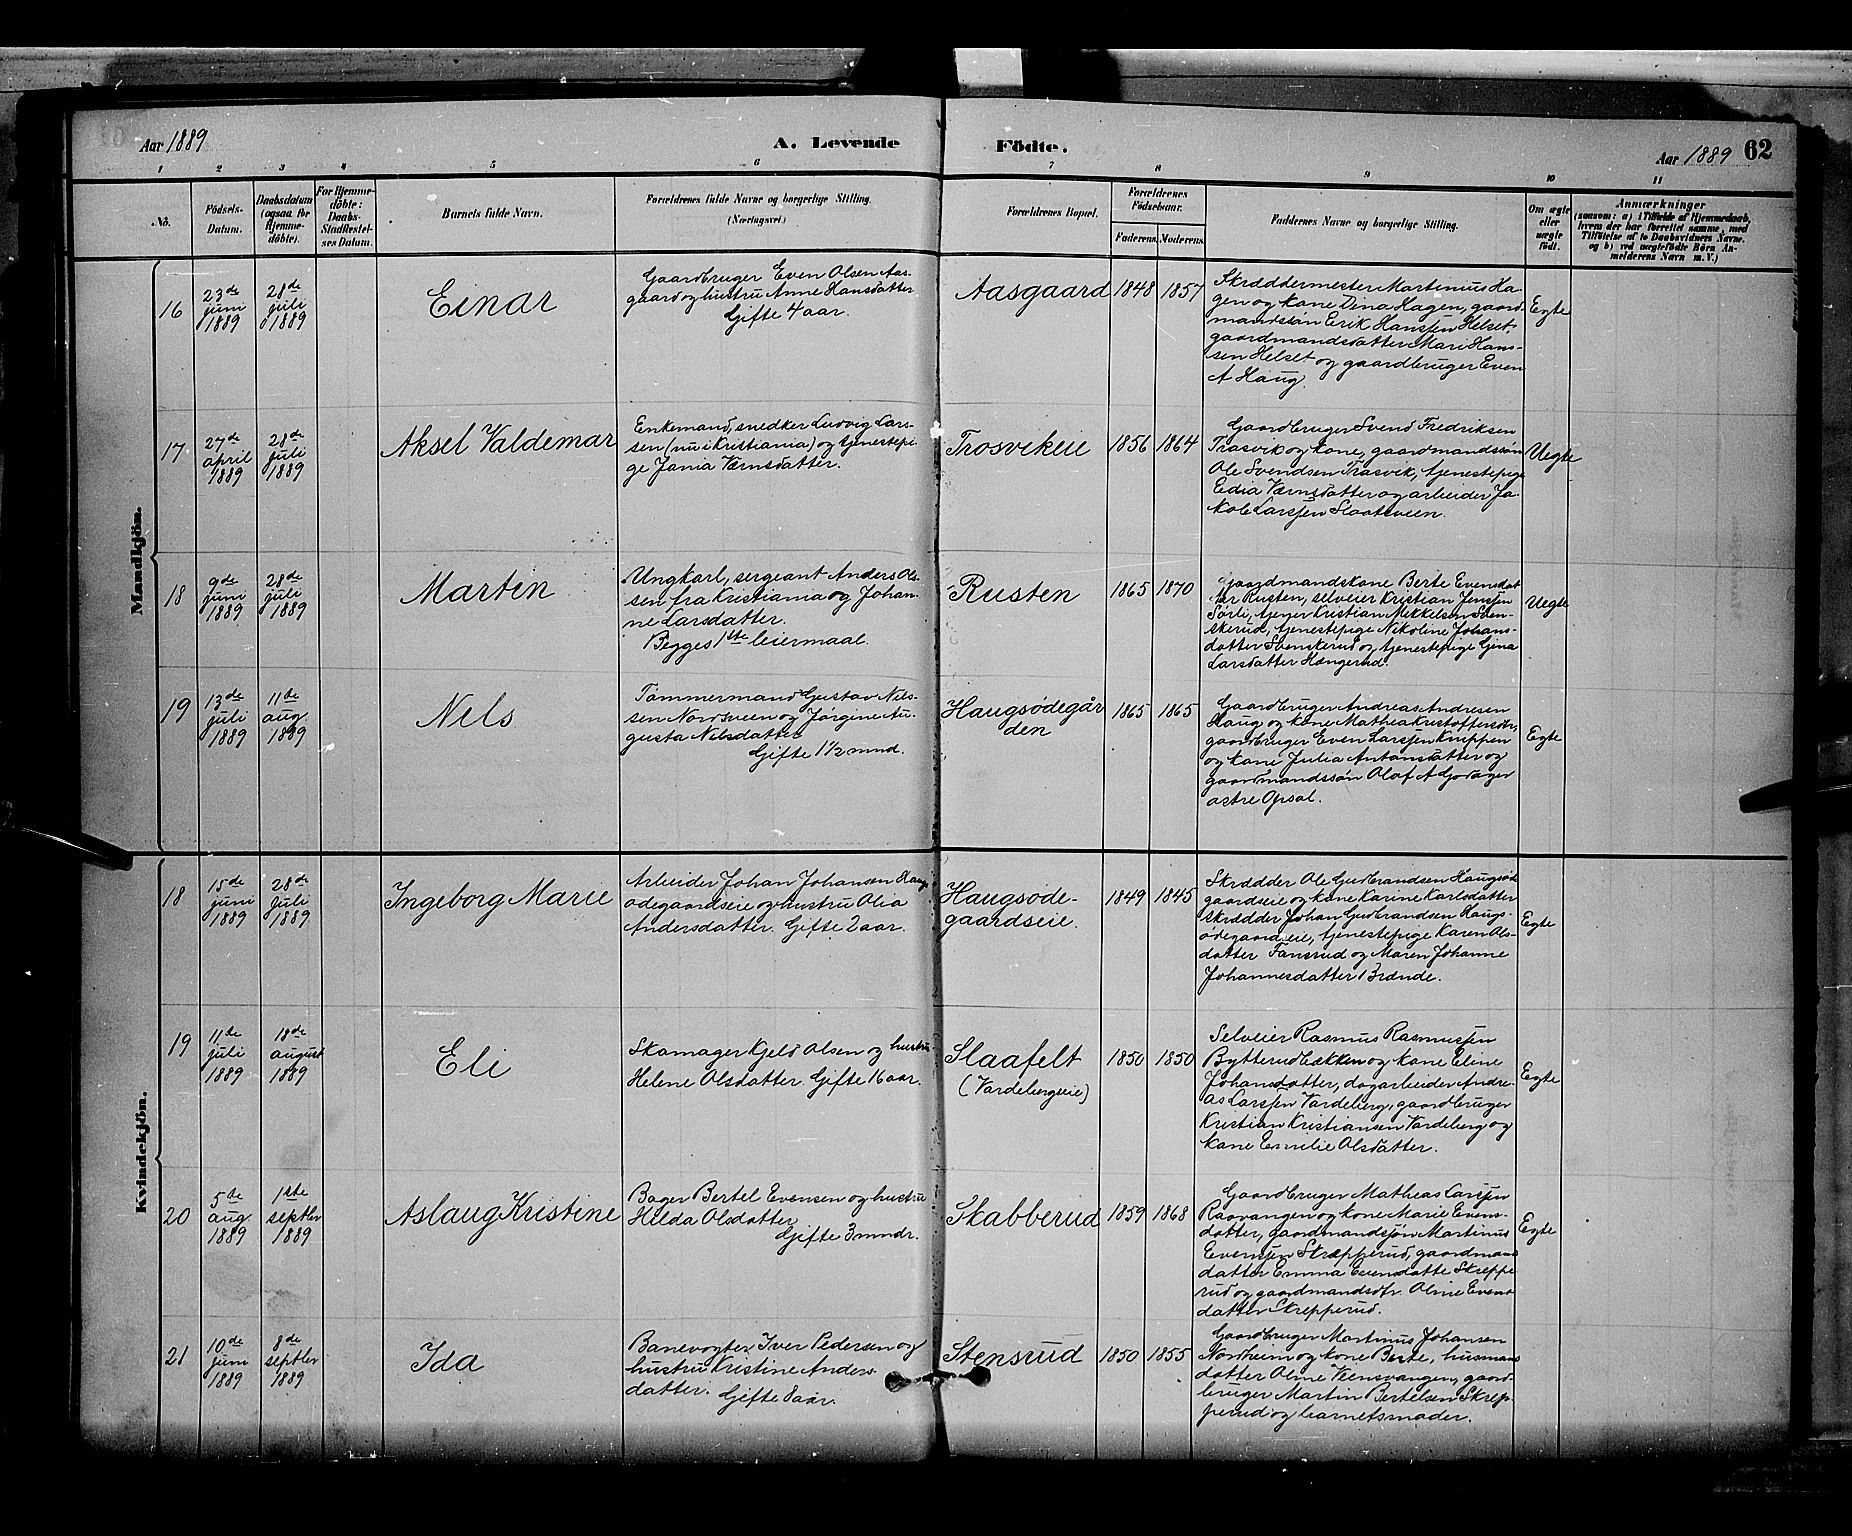 Aar 1889
A. Levende Födte.
Aar 1889 62
1 2 3 4 5 6 7 8 9 10 11
No.
Födsels-
Datum.
Daabsdatum
(ogsaa for
Hjemme-
döbte).
For Hjemme-
döbte:
Daabs-
Stadfæstel-
ses Datum.
Barnets fulde Navn.
Forældrenes fulde Navne og borgerlige Stilling.
(Næringsvei.)
Forældrenes Bopæl.
Forældrenes
Födselsaar.
Faderens. Moderens.
Faddernes Navne og borgerlige Stilling.
Om ægte
eller
uægte
födt.
Anmærkninger
(saasom: a) i Tilfælde af Hjemmedaab,
hvem der har forrettet samme, med
Tilföielse af to Daabsvidners Navne.
og b) ved uægtefödte Börn An-
melderens Navn m. V.)
Mandkjön.
16
23de
juni
1889
28de
juli
1889
Einar
Gaardbruger Even Olsen Aas-
gaard og hustru Anne Hansdatter
Gifte 4 aar.
Aasgaard
1848 1857
Skræddermester Martinius Ha-
gen og kone Dina Hagen, gaard-
mandssøn Erik Hanssen Helset,
gaardmandsdatter Mari Hans-
sen Helset og gaardbruger Even
A Haug.
Egte
17
27de
april
1889
28de
juli
1889
Aksel Valdemar
Enkemand, snedker Ludvig Lars-
sen (nu i Kristiania) og tjenestepi-
ge Jania Værnsdatter.
Trosvikeie
1856 1864
Gaardbruger Svend Fredriksen
Trasvik og kone, gaardmandssøn
Ole Svendsen Trasvik, tjenestepige
Edia Værnsdatter og arbeider Ja-
kob Larssen Slaatsveen.
Uegte
18
9de
juni
1889
28de
juli
1889
Martin
Ungkarl, sergeant Anders Ols-
sen fra Kristiania og Johan-
ne Larsdatter.
Begges 1ste leiermaal.
Rusten
1865 1870
Gaardmandskone Berte Evensdat
ter Rusten, selveier Kristian Jenssen
Sørli, tjener Kristian Mikkelsen Sven-
skerud, tjenestepige Nikoline Johans-
datter Svenskerud og tjenestepige Gina
Larsdatter Hængerud.
Uegte
19
13de
juli
1889
11te
aug.
1889
Nels
Tømmermand Gustav Nils-
sen Nordsveen og Jørgine Au-
gusta Nilsdatter
Gifte 1 1/2 mnd.
Haugsødegår
den
1865 1865
Gaardbruger Andreas Andresen
Haug og kone Mathea Kristoffersdtr,
gaardbruger Even Larssen Knippen
og kone Julia Antonsdatter og
gaardmandssøn Olaf A Gjøvager
østre Opsal.
Egte
Kvindekjön.
18
15de
juni
1889
28de
juli
1889
Ingeborg Marie
Arbeider Johan Johansen Haugs
ødegaardseie og hustru Olia
Andersdatter. Gifte 2 aar.
Haugsøde-
gaardseie.
1849 1845
Skrædder Ole Gudbrandsen Haugsøde
gaardseie og kone Karine Karlsdatter
skrædder Johan Gudbrandsen Haugs-
ødegaardseie, tjenestepige Karen Ols-
datter Fansrud og Maren Johanne
Johannesdatter Brønde.
Egte
19
11te
juli
1889
18de
august
1889
Eli
Skomager Kjeld Olsen og hustru
Helene Olsdatter. Gifte 16 aar.
Slaafelt
(Vardebergseie)
1850 1850
Selveier Rasmus Rasmussen
Bytterudbækken og kone Eline
Johansdatter, dagarbeider Andre-
as Larssen Vardeberg, gaardbruger
Kristian Kristiansen Vardeberg og
kone Emilie Olsdatter.
Egte
20
5te
aug.
1889
1ste
septbr
1889
Aslaug Kristine
Bager Bertel Evensen og hustru
Hilda Olsdatter
Gifte 3 mndr.
Skabberud
1859 1868
Gaardbruger Mathias Larssen
Raavangen og kone Marie Evens-
datter, gaardmandssøn Martinus
Evensen Skræpperud, gaardmans
datter Emma Evensdatte Skreppe
rud og gaardmandsdtr. Oline Evens
datter Skrepperud.
Egte
21
10de
juni
1889
8de
septbr
1889
Ida
Banevogter Iver Pedersen og
hustru Kristine Anders
datter. Gifte 8 aar.
Stensrud
1850 1855
Gaardbruger Martinus Johansen
Nordheim og kone Berte, husmans
datter Oline Teensvangen, gaard-
bruger Martin Bertelsen Skrep-
perud og barnetsmoder.